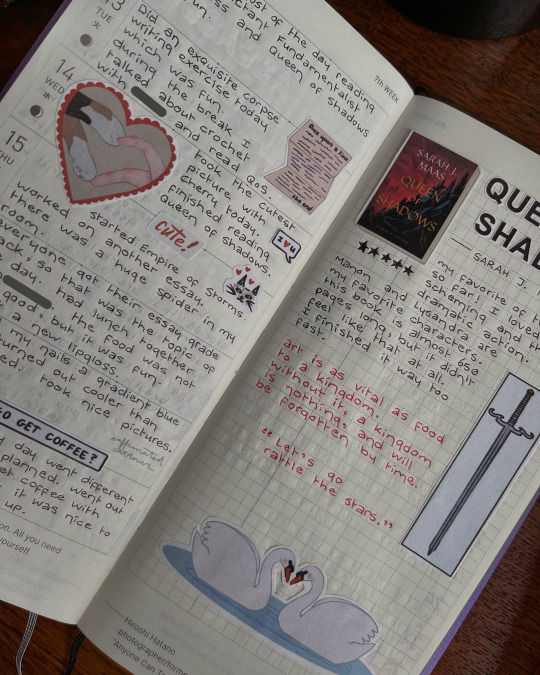 most of the day reading
Fundamentalist
and Queen of Shadows
fun.
7th WEEK
3
TUE
火
Did an exquisite corpse
writing exercise today
which was fun.
during the break I
talked about crochet
with and read QoS.
14
WED
水
took the cutest
picture with
Cherry today.
finished reading
Queen of Shadows.
cute!
I ♥ U
Once upon a time
the end
15
THU
started Empire of Storms.
worked on another essay.
there was a huge spider in my
room.
everyone got their essay grade
back, so that was the topic of
day. had lunch together
good, but it was not
fun.
a new lipgloss.
my nails a gradient blue
turned out cooler than
took nice pictures.
GO GET COFFEE?
day went different
planned, went out
get coffee with
it was nice to
up.
All you need
yourself.
SARAH J. MAAS
QUEEN OF SHADOWS
QUE
SHAD
— SARAH J.
★★★★★
my favorite of th
so far! I loved
scheming and th
dramatic action.
Manon and Lysandra are
my favorite characters.
this book is almost 650
pages long, but it didn't
feel like that at all.
I finished it way too
fast.
art is as vital as food
to a kingdom.
without it, a kingdom
be nothing, and will
forgotten by time.
"Let's go
rattle the stars."
Hiroshi Hatano
photographer/former
"Anyone Can T